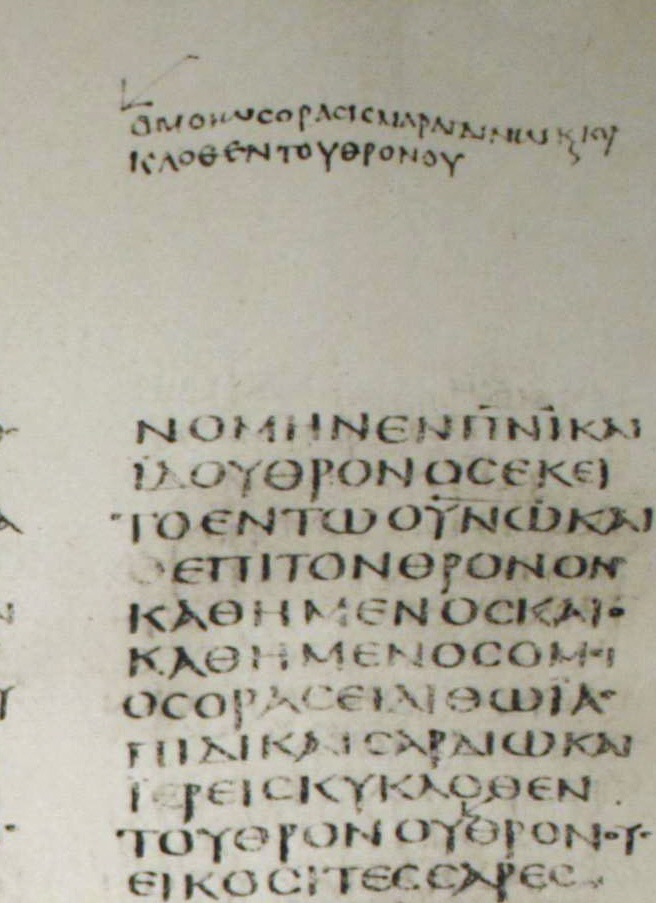 ΟΜΟΙΩCΟΡΑCΙCΜΑΡΑΓΔΙΝΩΚ ΚΥ
ΚΛΟΘΕΝΤΟΥΘΡΟΝΟΥ
ΝΟΜΗΝΕΝΠ̅Ν̅Ι̅ΚΑΙ
ΪΔΟΥΘΡΟΝΟCΕΚΕΙ
ΤΟΕΝΤΩΟΥ̅Ν̅Ω̅ΚΑΙ
ΟΕΠΙΤΟΝΘΡΟΝΟΝ
ΚΑΘΗΜΕΝΟCΚΑΙΟ
ΚΑΘΗΜΕΝΟCΟΜΟΙ
ΟCΟΡΑCΕΙΛΙΘΩΪΑ
ΠΙΔΙΚΑΙCΑΡΔΙΩΚΑΙ
ΪΕΡΕΙCΚΥΚΛΟΘΕΝ
ΤΟΥΘΡΟΝΟΥΘΡΟΝΟΥ
ΕΙΚΟCΙΤΕCCΑΡΕC